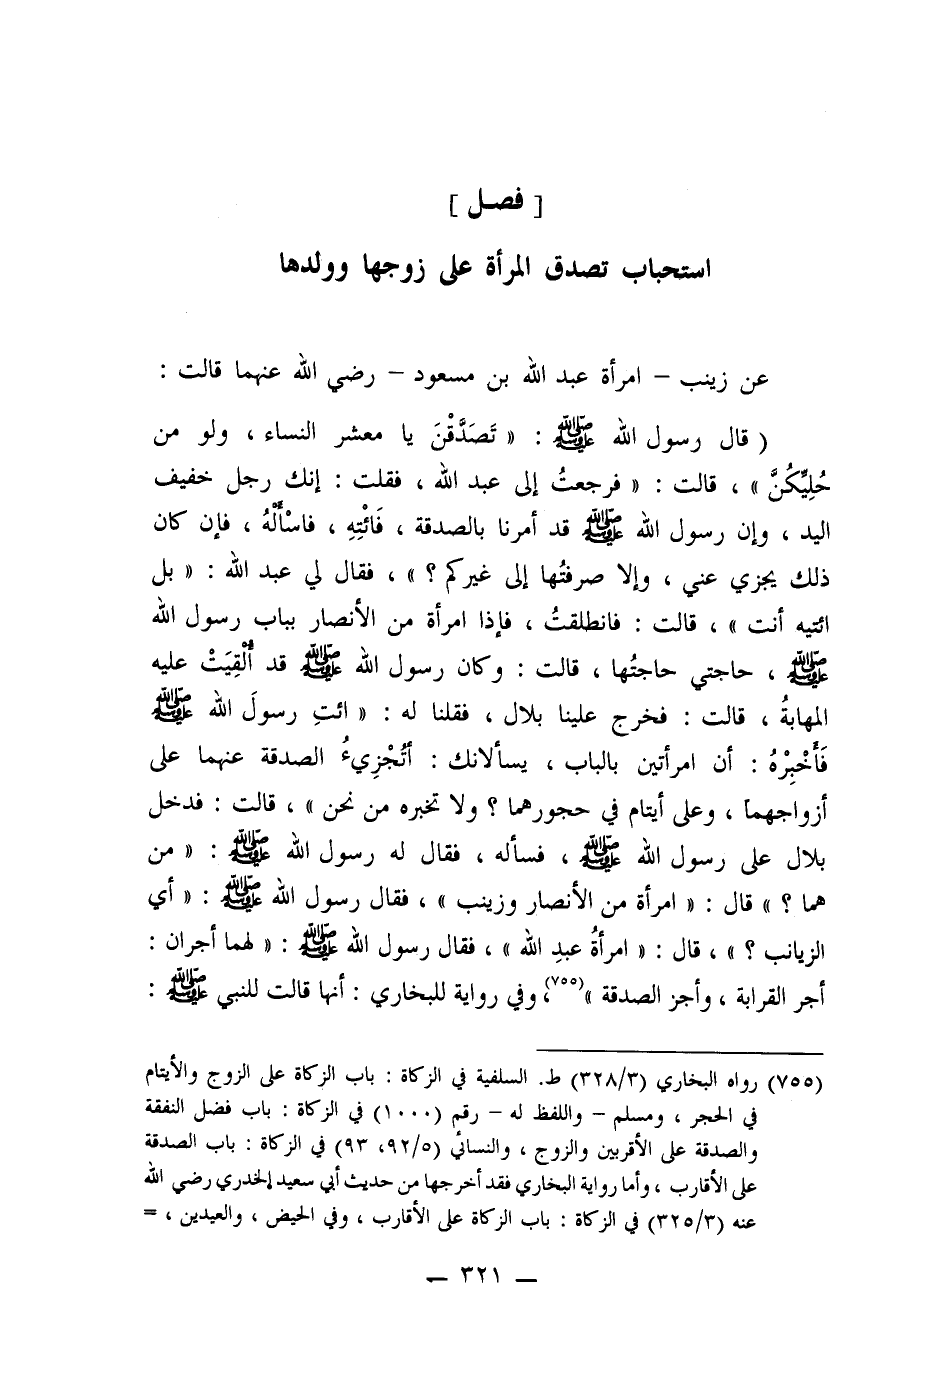 [ فصـل ]
استحباب تصدق المرأة على زوجها وولدها
عن زينب – امرأة عبد الله بن مسعود – رضي الله عنهما قالت :
( قال رسول الله ﷺ : « تَصَدَّقْنَ يا معشر النساء ، ولو من
حُلِيِّكُنَّ » ، قالت : « فرجعتُ إلى عبد الله ، فقلت : إنك رجل خفيف
اليد ، وإن رسول الله ﷺ قد أمرنا بالصدقة ، فَائْتِهِ ، فاسْأَلْهُ ، فإن كان
ذلك يجزي عني ، وإلا صرفتُها إلى غيركم ؟ » ، فقال لي عبد الله : « بل
ائتيه أنت » ، قالت : فانطلقتُ ، فإذا امرأة من الأنصار بباب رسول الله
ﷺ ، حاجتي حاجتُها ، قالت : وكان رسول الله ﷺ قد أُلْقِيَتْ عليه
المهابةُ ، قالت : فخرج علينا بلال ، فقلنا له : « ائتِ رسولَ الله ﷺ
فَأَخْبِرْهُ : أن امرأتين بالباب ، يسألانك : أتُجْزِيءُ الصدقة عنهما على
أزواجهما ، وعلى أيتام في حجورهما ؟ ولا تخبره من نحن » ، قالت : فدخل
بلال على رسول الله ﷺ ، فسأله ، فقال له رسول الله ﷺ : « من
هما ؟ » قال : « امرأة من الأنصار وزينب » ، فقال رسول الله ﷺ : « أي
الزيانب ؟ » ، قال : « امرأةُ عبدِ الله » ، فقال رسول الله ﷺ : « لهما أجران :
أجر القرابة ، وأجز الصدقة »(٧٥٥)، وفي رواية للبخاري : أنها قالت للنبي ﷺ :
(٧٥٥) رواه البخاري (٣٢٨/٣) ط. السلفية في الزكاة : باب الزكاة على الزوج والأيتام
في الحجر ، ومسلم – واللفظ له – رقم (١٠٠٠) في الزكاة : باب فضل النفقة
والصدقة على الأقربين والزوج ، والنسائي (٩٢/٥، ٩٣) في الزكاة : باب الصدقة
على الأقارب ، وأما رواية البخاري فقد أخرجها من حديث أبي سعيد الخدري رضي الله
عنه (٣٢٥/٣) في الزكاة : باب الزكاة على الأقارب ، وفي الحيض ، والعيدين ، =
– ٣٢١ –